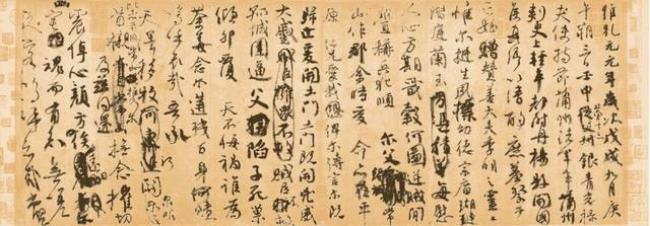 維乾元元年歲次戊戌九月庚
午朔三日壬申第十三叔銀青光祿
夫使持節蒲州諸軍事蒲州
刺史上輕車都尉丹楊縣開國
侯真卿以清酌庶羞祭于
亡姪贈贊善大夫季明之靈曰
惟爾挺生夙標幼德宗廟瑚璉
階庭蘭玉每慰
人心方期戩穀何圖逆賊閒
釁稱兵犯順爾父竭誠常
山作郡余時受命亦在平
原仁兄愛我俾爾傳言爾既
歸止爰開土門土門既開凶威
大蹙賊臣不救
孤城圍逼父陷子死巢
傾卵覆天不悔禍誰為
荼毒念爾遘殘百身何贖
嗚呼哀哉吾承
天澤移牧河關
首櫬及茲同還撫念摧切
震悼心顏方俟遠日
魂而有知無嗟
久客嗚呼哀哉尚饗